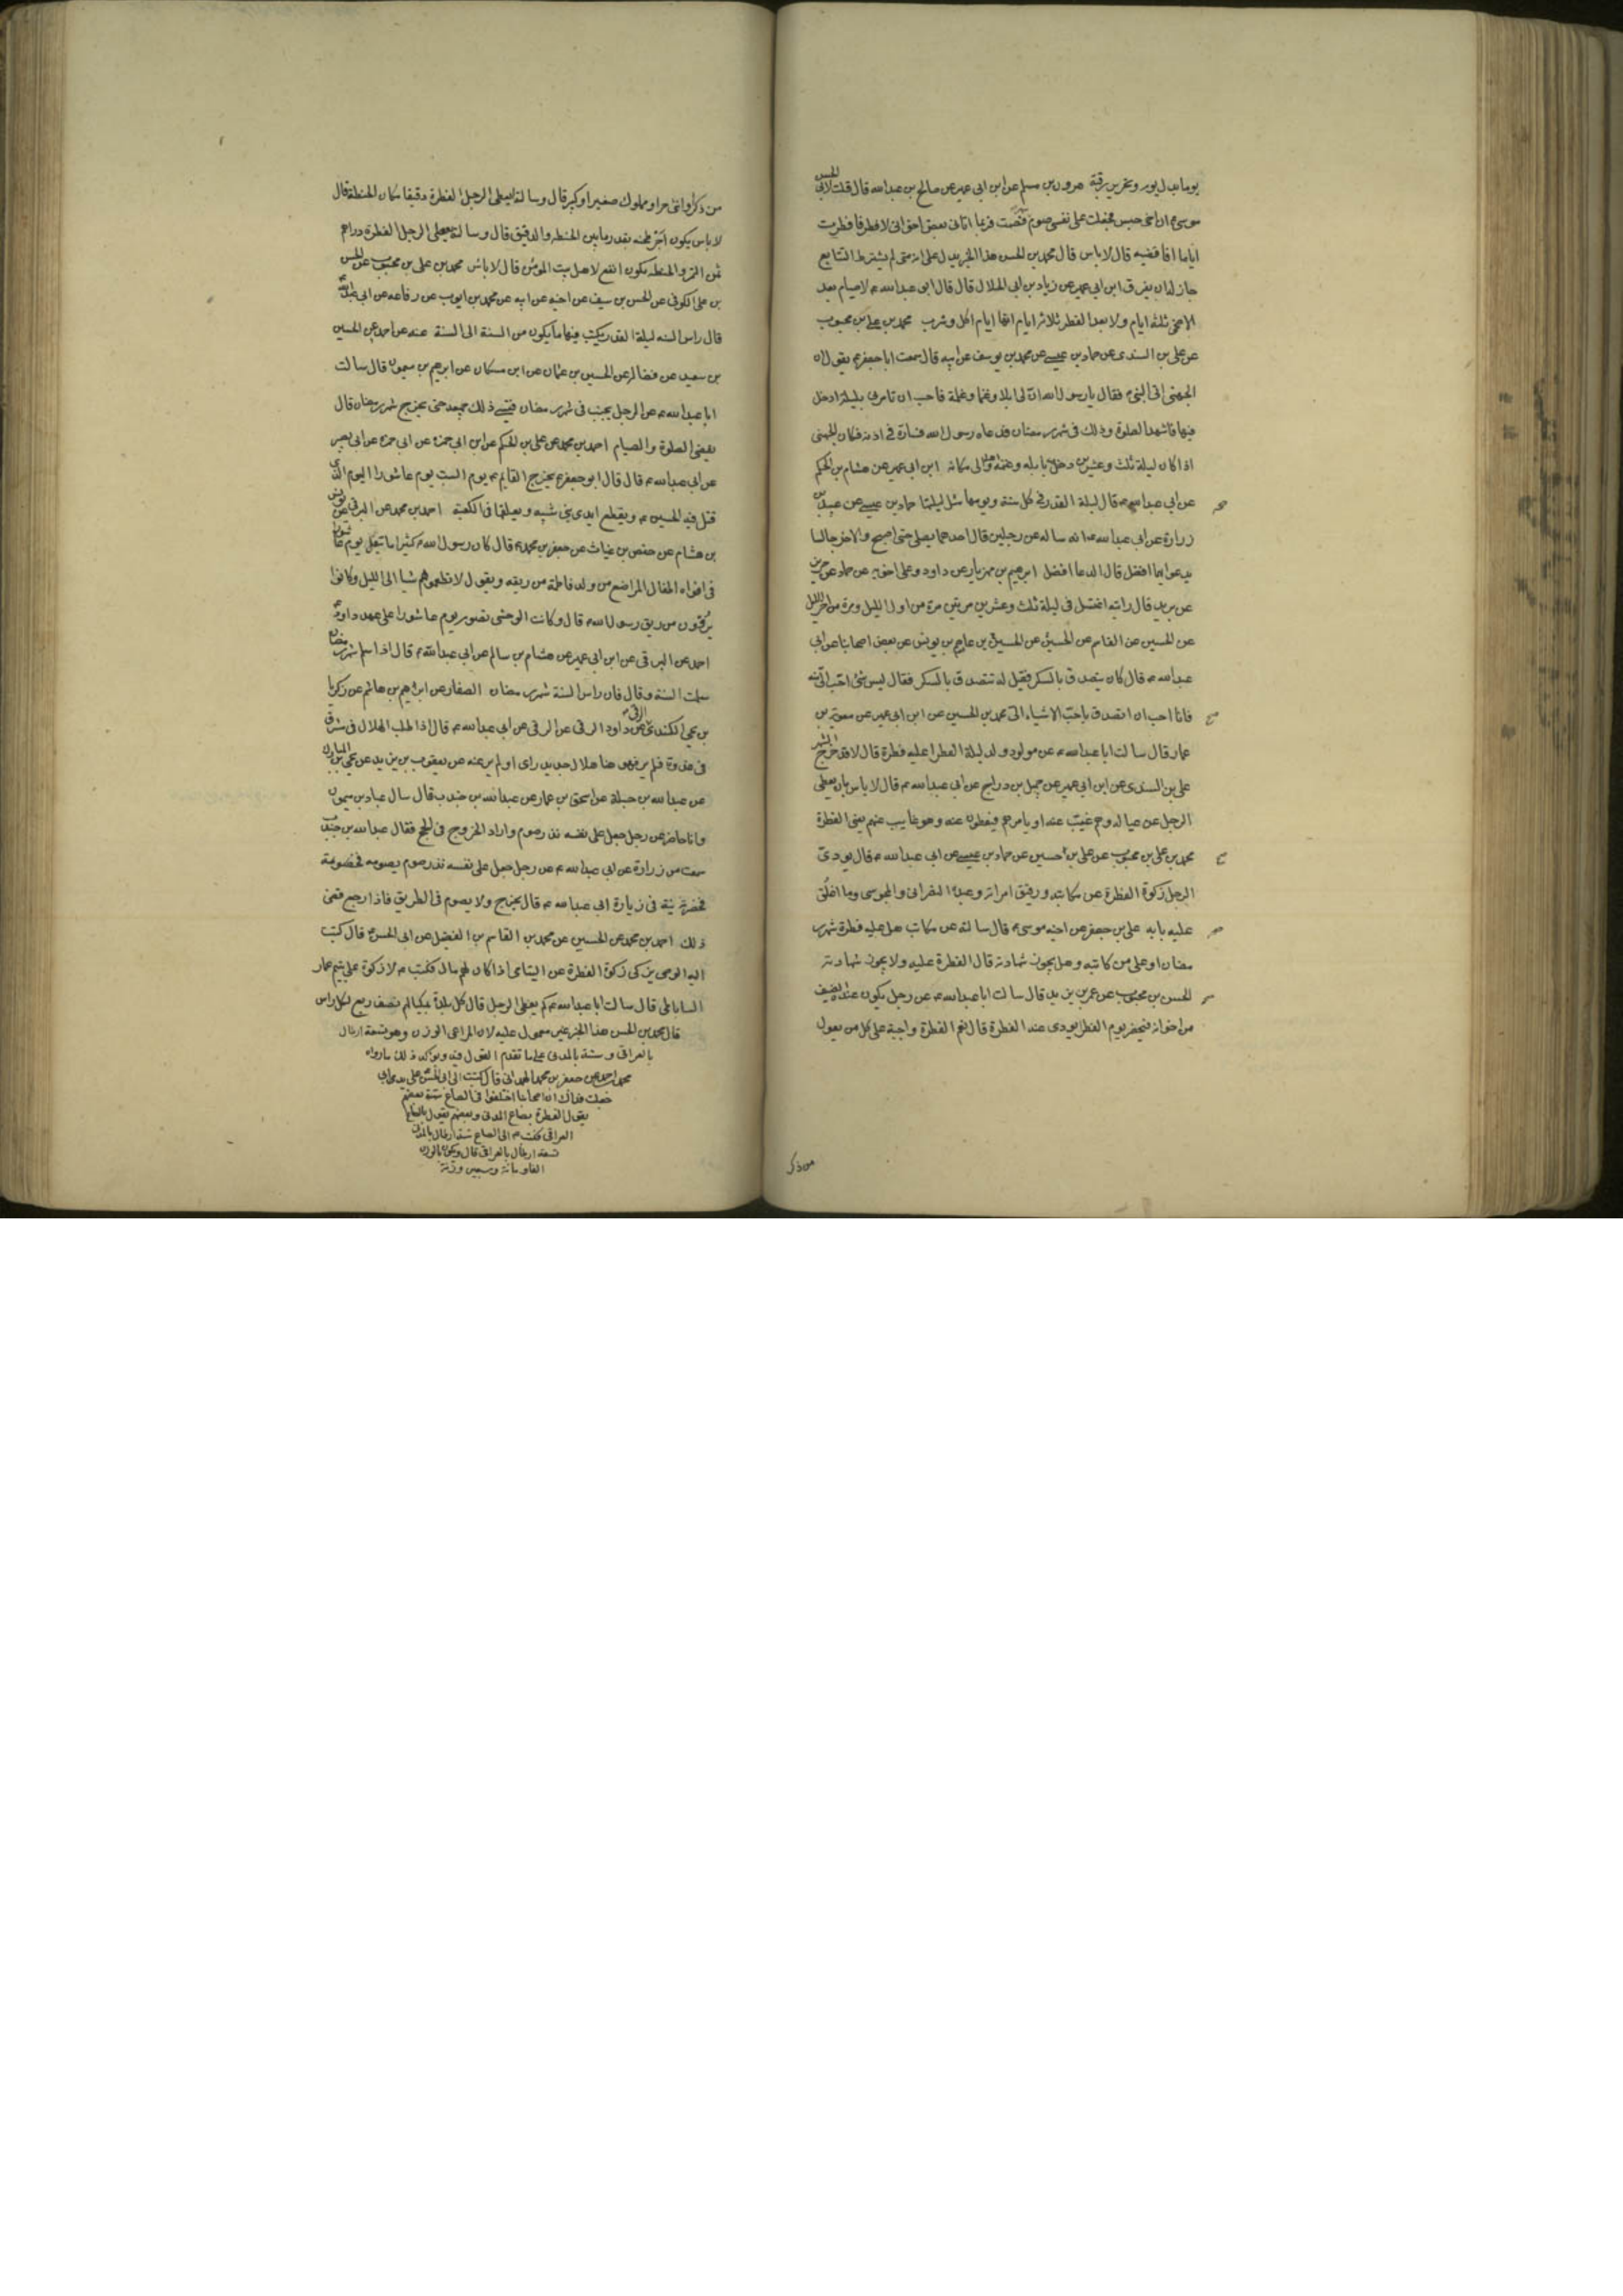 يوما بدل يوم وتحرير رقبة هرون بن مسلم عن ابن ابي عمير عن صالح بن عبد الله قال قلت لابي الحسن
موسى ع ان اخي حبس فجعلت على نفسي صوم فصمت فربما اتاني بعض اخواني لافطر فافطرت
اياما افاقضيه قال لا باس قال محمد بن الحسن هذا الخبر يدل على انه متى لم يشترط التتابع
جاز له ان يفرق ابن ابي عمير عن زياد بن ابي الحلال قال قال ابو عبد الله ع لا صيام بعد
الاضحى ثلثة ايام ولا بعد الفطر ثلاثة ايام انها ايام اكل وشرب محمد بن علي بن محبوب
عن علي بن السندي عن حماد بن عيسى عن محمد بن يوسف عن ابيه قال سمعت ابا جعفر ع يقول ان
الجهني اتى النبي ص فقال يا رسول الله ان لي ابلا وغنما وغلمة فاحب ان تامرني بليلة ادخل
فيها فاشهد الصلوة وذلك في شهر رمضان فدعاه رسول الله فساره في اذنه فكان الجهني
اذا كان ليلة ثلث وعشرين دخل بابله وغنمه واهله الى مكانه ابن ابي عمير عن هشام بن الحكم
عن ابي عبد الله ع قال ليلة القدر في كل سنة ويومها مثل ليلتها حماد بن عيسى عن عبيد بن
زرارة عن ابي عبد الله ع انه ساله عن رجلين قام احدهما يصلي حتى اصبح والاخر جالسا
يدعو ايهما افضل قال الدعا افضل ابرهيم بن مهزيار عن داود وعلي اخويه عن حماد عن حريز
عن بريد قال رايته اغتسل في ليلة ثلث وعشرين مرتين مرة من اول الليل ومرة من اخر الليل
عن الحسين عن القاسم عن الحسين عن الحسين بن عاصم بن يونس عن بعض اصحابنا عن ابي
عبد الله ع قال كان يتصدق بالسكر فقيل له تتصدق بالسكر فقال ليس شئ احب الي منه
فانا احب ان اتصدق باحب الاشياء الي محمد بن الحسين عن ابن ابي عمير عن معوية بن
عمار قال سالت ابا عبد الله ع عن مولود ولد ليلة الفطر اعليه فطرة قال لا قد خرج الشهر
علي بن السندي عن ابن ابي عمير عن جميل بن دراج عن ابي عبد الله ع قال لا باس بان يعطي
الرجل عن عياله وهم غيب عنه او يامرهم فيعطون عنه وهو غايب عنهم يعني الفطرة
محمد بن علي بن محبوب عن علي بن الحسين عن حماد بن عيسى عن ابي عبد الله ع قال يودي
الرجل زكوة الفطرة عن مكاتبه ورقيق امراته وعبده النصراني والمجوسي وما اغلق
عليه بابه علي بن جعفر عن اخيه موسى ع قال سالته عن مكاتب هل عليه فطرة شهر
رمضان او على من كاتبه وهل يجوز شهادته قال الفطرة عليه ولا يجوز شهادته
الحسن بن محبوب عن عمر بن يزيد قال سالت ابا عبد الله ع عن رجل يكون عنده الضيف
من اخوانه فيحضر يوم الفطر يودي عنه الفطرة قال نعم الفطرة واجبة على كل من يعول
من ذكر
من ذكر او انثى حر او مملوك صغير او كبير قال وسالته ايعطي الرجل الفطرة دقيقا مكان الحنطة قال
لا باس يكون اجر طحنه بقدر ما بين الحنطة والدقيق قال وسالته يعطي الرجل الفطرة دراهم
ثمن التمر والحنطة يكون انفع لاهل بيت المؤمن قال لا باس محمد بن علي بن محبوب عن الحسن
بن علي الكوفي عن الحسن بن سيف عن اخيه عن ابيه عن محمد بن ايوب عن رفاعه عن ابي عبد الله ع
قال راس السنه ليلة القدر يكتب فيها ما يكون من السنة الى السنة عنه عن احمد عن الحسين
بن سعيد عن فضالة عن الحسين بن عثمان عن ابن مسكان عن ابرهيم بن ميمون قال سالت
ابا عبد الله ع عن الرجل يجنب في شهر رمضان فينسى ذلك جميعه حتى يخرج شهر رمضان قال
يقضي الصلوة والصيام احمد بن محمد عن علي بن الحكم عن ابن ابي حمزه عن ابي حمزه عن ابي بصير
عن ابي عبد الله ع قال قال ابو جعفر ع يخرج القايم ع يوم السبت يوم عاشورا اليوم الذي
قتل فيه الحسين ع ويقطع ايدي بني شيبه ويعلقها في الكعبة احمد بن محمد عن البرقي عن يونس
بن هشام عن حفص بن غياث عن جعفر بن محمد ع قال كان رسول الله ص كثيرا ما يتفل يوم عاشورا
في افواه اطفال المراضع من ولد فاطمة من ريقه ويقول لا تطعموهم شيا الى الليل وكانوا
يروون من ريق رسول الله ص قال وكانت الوحش تصوم يوم عاشورا على عهد داود ع
احمد عن البرقي عن ابن ابي عمير عن هشام بن سالم عن ابي عبد الله ع قال اذا سلم شهر رمضان
سلمت السنة وقال فان راس السنة شهر رمضان الصفار عن ابرهيم بن هاشم عن زكريا
بن يحيى الكندي عن داود الرقي عن ابي عبد الله ع قال اذا طلب الهلال في المشرق
في غدوة فلم ير فهو هنا هلال جديد راي او لم ير عنه عن يعقوب بن يزيد عن يحيى بن المبارك
عن عبد الله بن جبلة عن اسحق بن عمار عن عبد الله بن جندب قال سال عباد بن ميمون
وانا حاضر عن رجل جعل على نفسه نذر صوم واراد الخروج في الحج فقال عبد الله بن جندب
سمعت من زرارة عن ابي عبد الله ع عن رجل جعل على نفسه نذر صوم يصومه
فحضرته نية في زيارة ابي عبد الله ع قال يخرج ولا يصوم في الطريق فاذا رجع قضى
ذلك احمد بن محمد عن الحسين عن محمد بن القاسم بن الفضيل عن ابي الحسن ع قال كتبت
اليه الوصي يزكي زكوة الفطرة عن اليتامى اذا كان لهم مال فكتب ع لا زكوة على يتيم عمار
الساباطي قال سالت ابا عبد الله ع كم يعطي الرجل قال كل بلدة بمكيالهم نصف ربع لكل راس
قال محمد بن الحسن هذا الخبر غير معمول عليه لان المراعى الوزن وهو تسعة ارطال
بالعراقي وستة بالمدني على ما تقدم القول فيه ويوكد ذلك ما رواه
محمد بن احمد عن جعفر بن محمد الهمداني قال كتبت الى ابي الحسن على يدي ابي
جعلت فداك ان اصحابنا اختلفوا في الصاع بعضهم
يقول الفطرة بصاع المدني وبعضهم يقول بصاع
العراقي فكتب ع الي الصاع ستة ارطال بالمدني
تسعة ارطال بالعراقي قال ويكون بالوزن
الفا ومائة وسبعين وزنة